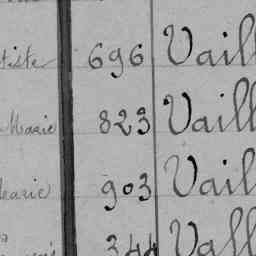 tiste 696 Vaill
Marie 823 Vaill
Marie 903 Vail
344 Vall